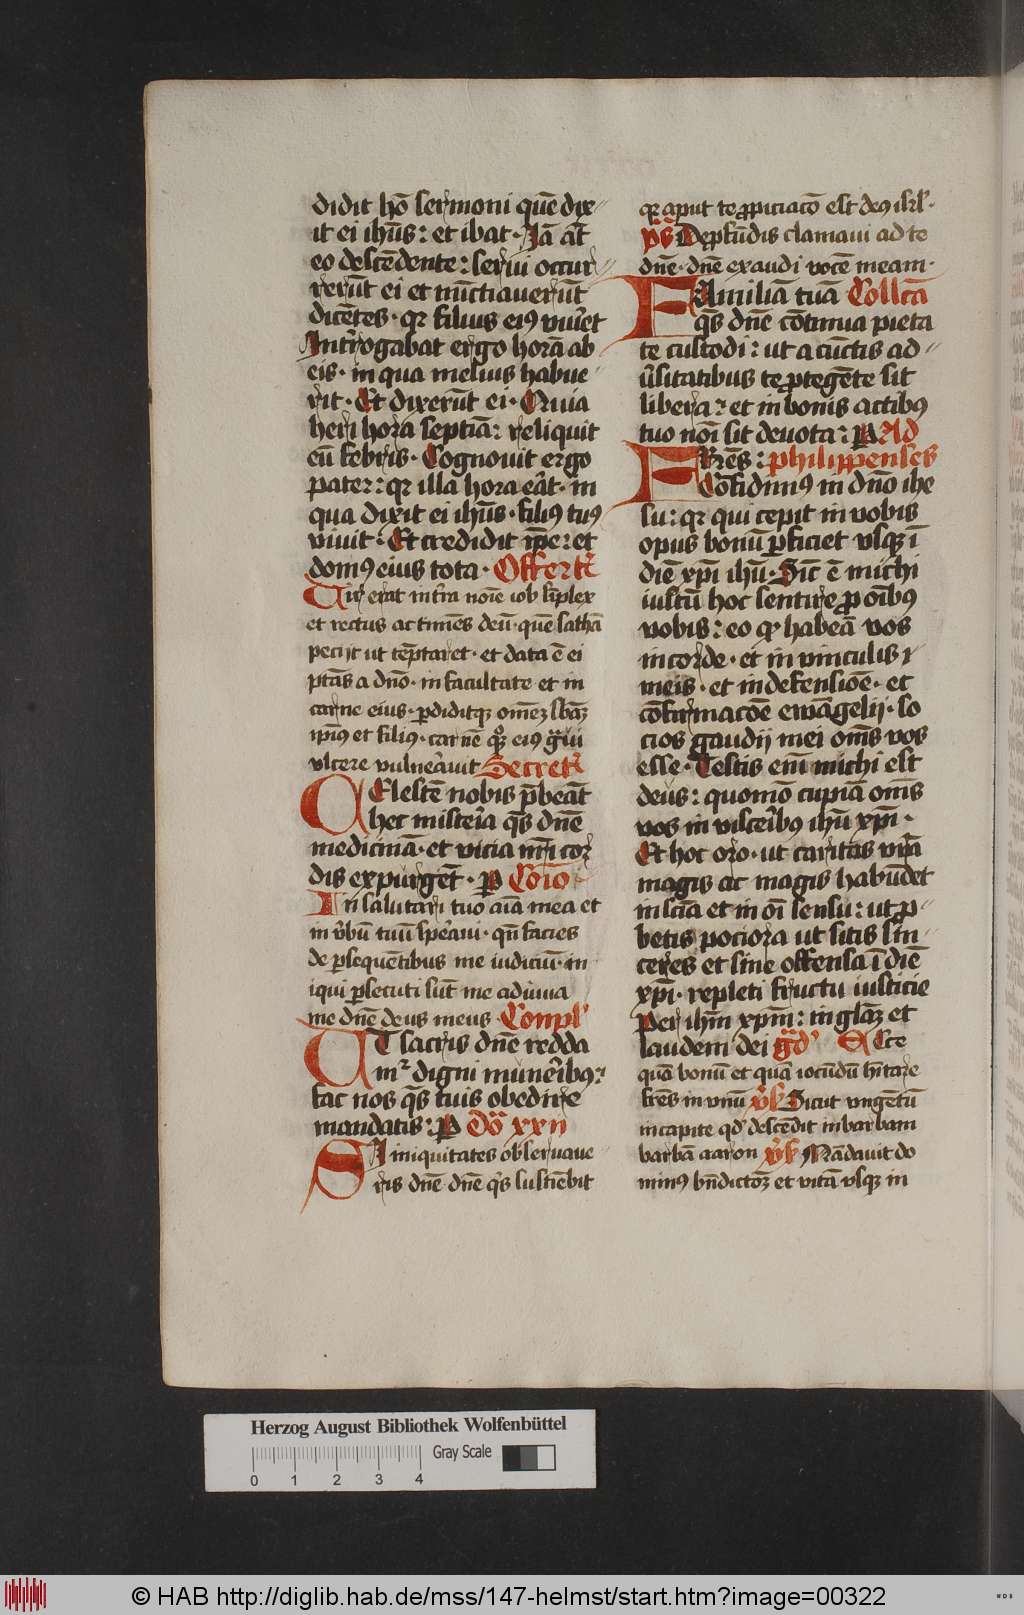 didit hō sermoni quē dix⸗
it ei ihūs: et ibat · Jā āt
eo descēdente: serui occur⸗
rerūt ei et nūctiauerūt
dicētes · qr filius ei9 viuēt
Jntrogabat ergo horā ab
eis · in qua melius habue⸗
rit · Et dixerūt ei · Quia
heri hora septiā: reliquit
eū febris · Cognouit ergo
pater: qr illa hora eāt · in
qua dixit ei ihūs · fili9 tu9
viuit · Et credidit ip̄e: et
dom9 eius tota · Offert̄
Vir erat in tra noīe iob sīplex
et rectus ac timēs deū · quē sathā
peciit ut tēptaret · et data ē ei
ptās a dn̄o · in facultate et in
carne eius · ꝑdiditqꝫ om̄eꝫ sb̄aꝫ
ip̄i9 et fili9 · carnē qꝫ ei9 gͣui
vlcere vulneāuit Secret̄
CElestē nobis p̄beāt
hec misteīa qs̄ dn̄e
medicinā · et vicia nr̄i cor
dis expurgēt · P Cōio
In salutari tuo aīa mea et
in v̄bū tuū speāui · qn̄ facies
de ꝑsequētibus me iudiciū · in
iqui ꝑsecuti sūt me adiuua
me dn̄e deus meus · Conpl'
VT sacris dn̄e redda
mr digni munēib9:
fac nos qs̄ tuis obedire
mandatis: P Dō xxii
SJ iniquitates obseruaue⸗
ris dn̄e dn̄e qs̄ sustīebit
qr aput te ꝓpiciacō est de9 isrl' ·
ps̄ De ꝓfūdis clamaui ad te
dn̄e · dn̄e exaudi vocē meam ·
FAmiliā tuā Collcā
qs̄ dn̄e cōtinua pieta
te custodi: ut a cūctis ad⸗
ūsitatibus te ꝓtegēte sit
libera: et in bonis actib9
tuo noī sit deuota: P Ad
FRēs: philippenses
Cōfidim9 in dn̄o ihe
su: qr qui cepit in vobis
opus bonū ꝑficiet vsqꝫ ī
diē xp̄i ihū · Sic̄ ē michi
iustū hoc sentire ꝓ oīb9
vobis: eo qꝫ habeā vos
in corde · et in vinculis
meis · et in defensiōe · et
cōfirmacōe ewāgelij · so
cios gaudij mei om̄s vos
esse · Testis eīm michi est
deus: quomō cupiā om̄s
vos in visceīb9 ihū xp̄i ·
Et hoc oro · ut caritas vr̄a
magis ac magis habūdet
in sciā et in oī sensu: ut ꝓ⸗
betis pociora ut sitis sīn⸗
ceres et sine offensa ī diē
xp̄i · repleti fructu iusticie
per ihm̄ xpm̄: in glāꝫ et
laudem dei gͣd' Ecce
quā bonū et quā iocūdū hītare
frēs in vnū v̄k Sicut vngētū
in capite qd' descēdit in barbam
barbā aaron v̄k Māndauit do
min9 bn̄dictōꝫ et vitā vsqꝫ in
Herzog August Bibliothek Wolfenbüttel
Gray Scale
0 1 2 3 4
© HAB http://diglib.hab.de/mss/147-helmst/start.htm?image=00322